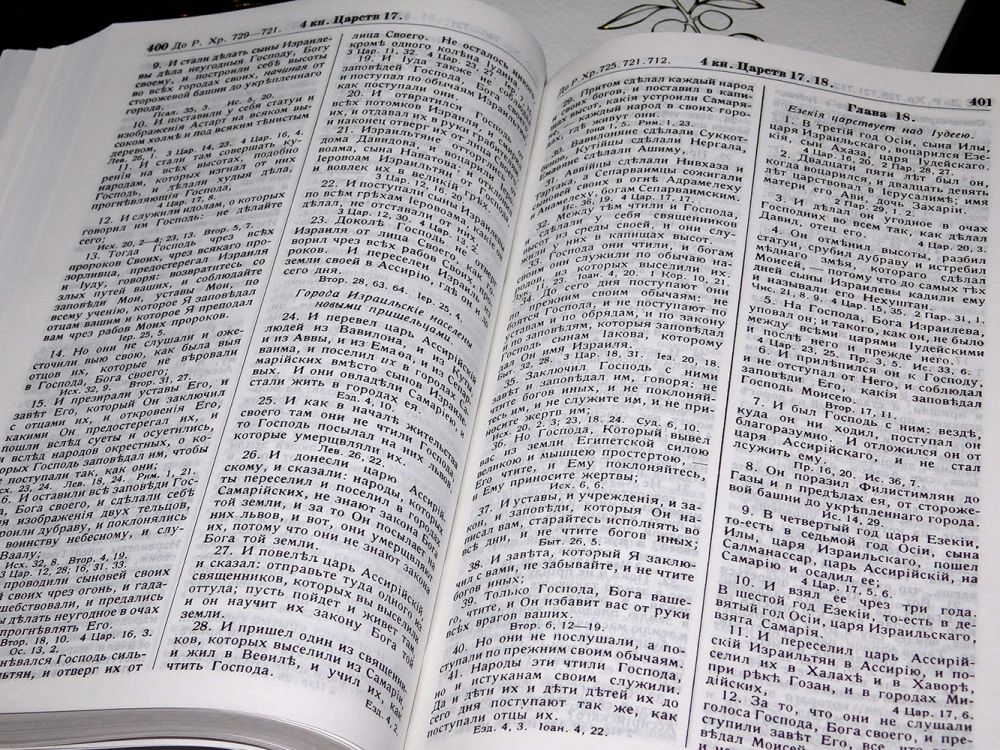 400 До Р. Хр. 729—721.
4 кн. Царств 17.
9. И стали дѣлать сыны Израиле-
вы дѣла неугодныя Господу, Богу
своему, и построили себѣ высоты
во всѣхъ городахъ своихъ, начиная отъ
сторожевой башни до укрѣпленнаго
города.
Псал. 35, 3. Ис. 5, 20.
10. И поставили у себя статуи и
изображенія Астартъ на всякомъ вы-
сокомъ холмѣ и подъ всякимъ тѣнистымъ
деревомъ,
Лев. 26, 1. 3 Цар. 14, 23. 4 Цар. 16, 4.
11. И стали тамъ совершать ку-
ренія на всѣхъ высотахъ, подобно
народамъ, которыхъ изгналъ отъ нихъ
Господь, и дѣлали худыя дѣла,
прогнѣвляющія Господа,
4 Цар. 17, 8.
12. И служили идоламъ, о которыхъ
говорилъ имъ Господь: не дѣлайте
сего;
Исх. 20, 2—4; 23, 13. Втор. 5, 7.
13. Тогда Господь чрезъ всѣхъ
пророковъ Своихъ, чрезъ всякаго про-
зорливца, предостерегалъ Израиля
и Іуду, говоря: возвратитесь со
злыхъ путей вашихъ, и соблюдайте
заповѣди Мои, уставы Мои, по
всему ученію, которое Я заповѣдалъ
отцамъ вашимъ и которое Я преподалъ
вамъ чрезъ рабовъ Моихъ пророковъ.
Іер. 25, 5.
14. Но они не слушали и оже-
сточили выю свою, какъ была выя
отцовъ ихъ, которые не вѣровали
въ Господа, Бога своего;
Исх. 32, 8. Втор. 31, 27.
15. И презирали уставы Его, и
завѣтъ Его, который Онъ заключилъ
съ отцами ихъ, и откровенія Его,
какими Онъ предостерегалъ ихъ, и
пошли вслѣдъ суеты и осуетились,
и вслѣдъ народовъ окрестныхъ, о ко-
торыхъ Господь заповѣдалъ имъ, чтобы
не поступали такъ, какъ они;
23, 24. Лев. 18, 24. Рим. 1, 21.
6. И оставили всѣ заповѣди Гос-
Бога своего, и сдѣлали себѣ
изображенія двухъ тельцовъ,
устроили дубраву, и поклонялись
воинству небесному, и слу-
Ваалу;
Исх. 32, 8. Втор. 4, 19.
3 Цар. 12, 28; 16, 31. 33.
проводили сыновей своихъ
своихъ чрезъ огонь, и гада-
волшебствовали, и предались
дѣлать неугодное въ очахъ
прогнѣвлять Его.
Втор. 18, 10. 4 Цар. 16, 3.
Ос. 13, 2.
гнѣвался Господь силь-
тянъ, и отвергъ ихъ отъ
лица Своего. Не осталось никого,
кромѣ одного колѣна Іудина.
3 Цар. 11, 32. 4 Цар. 23, 27.
19. И Іуда также не соблюдалъ
заповѣдей Господа,
и поступалъ по обычаямъ Израильтянъ,
какъ поступали они.
20. И отвратился Господь отъ
всѣхъ потомковъ Израиля, и смирилъ
ихъ, и отдавалъ ихъ въ руки грабителямъ,
и наконецъ отвергъ ихъ отъ лица Своего.
21. Израильтяне отторглись отъ
дома Давидова, и воцарили Іеро-
воама, сына Наватова; и отвратилъ
Іеровоамъ Израильтянъ отъ Господа,
и вовлекъ ихъ въ великій грѣхъ.
3 Цар. 12, 16. 20.
22. И поступали сыны Израилевы
по всѣмъ грѣхамъ Іеровоама, какіе онъ
дѣлалъ, не отставали отъ нихъ,
3 Цар. 12, 30. 4 Цар. 13, 2.
23. Доколѣ Господь не отвергъ
Израиля отъ лица Своего, какъ го-
ворилъ чрезъ всѣхъ рабовъ Своихъ, про-
роковъ. И переселенъ Израиль изъ
земли своей въ Ассирію, гдѣ онъ и до
сего дня.
Втор. 28, 63. 64. Іер. 25, 4.
Города Израильскіе населены
новыми пришельцами.
24. И перевелъ царь Ассирійскій
людей изъ Вавилона, и изъ Куты,
и изъ Аввы, и изъ Емаѳа, и изъ Сепар-
ваима, и поселилъ ихъ въ городахъ Са-
марійскихъ вмѣсто сыновъ Израиле-
выхъ. И они овладѣли Самаріею, и
стали жить въ городахъ ея.
Езд. 4, 10.
25. И какъ въ началѣ жительства
своего тамъ они не чтили Господа,
то Господь посылалъ на нихъ львовъ,
которые умерщвляли ихъ.
Лев. 26, 22.
26. И донесли царю Ассирій-
скому, и сказали: народы, которыхъ
ты переселилъ и поселилъ въ городахъ
Самарійскихъ, не знаютъ закона Бога
той земли, и за то Онъ посылаетъ на
нихъ львовъ, и вотъ, они умерщвляютъ
ихъ, потому что они не знаютъ закона
Бога той земли.
27. И повелѣлъ царь Ассирійскій
и сказалъ: отправьте туда одного изъ
священниковъ, которыхъ вы выселили
оттуда; пусть пойдетъ и живетъ тамъ,
и онъ научитъ ихъ закону Бога той
земли.
28. И пришелъ одинъ изъ священни-
ковъ, которыхъ выселили изъ Самаріи,
и жилъ въ Веѳилѣ, и училъ ихъ, какъ
чтить Господа.
Езд. 4,
До Р. Хр. 725. 721. 712.
4 кн. Царствъ 17. 18.
401
29. Притомъ сдѣлалъ каждый народъ
своихъ боговъ, и поставилъ въ капи-
щахъ высотъ, какія устроили Самаря-
не, каждый народъ въ своихъ горо-
дахъ, гдѣ живутъ они.
Іона 1, 5. Рим. 1, 23.
30. Вавилоняне сдѣлали Суккот-
Беноѳъ, Кутійцы сдѣлали Нергала,
Емаѳяне сдѣлали Ашиму,
31. Аввійцы сдѣлали Нивхаза и
Тартака, а Сепарваимцы сожигали
сыновей своихъ въ огнѣ Адрамелеху
и Анамелеху, богамъ Сепарваимскимъ.
36, 19. 4 Цар. 17, 17.
32. Между тѣмъ чтили и Господа,
и сдѣлали у себя священниковъ
высотъ изъ среды своей, и они слу-
жили у нихъ въ капищахъ высотъ.
33. Господа они чтили, и богамъ
своимъ они служили по обычаю на-
родовъ, изъ которыхъ выселили ихъ.
Соф. 1, 5. Іоан. 4, 20. 1 Кор. 10, 21.
34. До сего дня поступаютъ они
по прежнимъ своимъ обычаямъ: не
боятся Господа, и не поступаютъ по
уставамъ и по обрядамъ, и по закону
и по заповѣдямъ, которыя заповѣдалъ
Господь сынамъ Іакова, которому
далъ Онъ имя Израиля.
32, 28. 3 Цар. 18, 31. Іез. 20, 18.
35. Заключилъ Господь съ ними
завѣтъ и заповѣдалъ имъ, говоря: не
чтите боговъ иныхъ, и не покланяй-
тесь имъ, и не служите имъ, и не при-
носите жертвъ имъ;
Исх. 20, 2. 3; 23, 18. 24. Суд. 6, 10.
36. Но Господа, Который вывелъ
васъ изъ земли Египетской силою
великою и мышцею простертою, —
Его чтите, и Ему поклоняйтесь,
и Ему приносите жертвы;
Исх. 6, 6.
37. И уставы, и учрежденія, и за-
конъ, и заповѣди, которыя Онъ на-
писалъ вамъ, старайтесь исполнять во
всѣ дни, и не чтите боговъ иныхъ;
Быт. 26, 5.
38. И завѣта, который Я заклю-
чилъ съ вами, не забывайте, и не чтите
боговъ иныхъ;
39. Только Господа, Бога ваше-
го, чтите, и Онъ избавитъ васъ отъ руки
всѣхъ враговъ вашихъ.
Втор. 6, 12—19.
40. Но они не послушали, а по-
ступали по прежнимъ своимъ обычаямъ.
41. Народы эти чтили Господа,
но и истуканамъ своимъ служили.
Да и дѣти ихъ и дѣти дѣтей ихъ до
сего дня поступаютъ такъ же, какъ
поступали отцы ихъ.
Езд. 4, 3. Іоан. 4, 22.
Глава 18.
Езекія царствуетъ надъ Іудеею.
1. Въ третій годъ Осіи, сына Илы,
царя Израильскаго, воцарился Езе-
кія, сынъ Ахаза, царя Іудейскаго.
4 Цар. 16, 20. 2 Цар. 28, 27.
2. Двадцати пяти лѣтъ былъ онъ,
когда воцарился, и двадцать девять
лѣтъ царствовалъ въ Іерусалимѣ; имя
матери его Ави, дочь Захаріи.
2 Пар. 29, 1. 2.
3. И дѣлалъ онъ угодное въ очахъ
Господнихъ во всемъ такъ, какъ дѣлалъ
Давидъ, отецъ его.
4 Цар. 20, 3.
4. Онъ отмѣнилъ высоты, разбилъ
статуи, срубилъ дубраву и истребилъ
мѣднаго змѣя, котораго сдѣлалъ
Моисей, — потому что до самыхъ тѣхъ
дней сыны Израилевы кадили ему
и называли его Нехуштанъ.
Чис. 21, 8. 9. 4 Цар. 15, 35. 2 Пар. 31, 1.
5. На Господа, Бога Израилева,
уповалъ онъ; и такого, какъ онъ, не было
между всѣми царями Іудейскими
и послѣ него и прежде него.
4 Цар. 23, 25. Пр. 3, 5. Ис. 33, 6.
6. И прилѣпился онъ къ Господу,
и не отступалъ отъ Него, и соблюдалъ
заповѣди Его, какія заповѣдалъ
Господь Моисею.
Втор. 17, 11.
7. И былъ Господь съ нимъ: вездѣ,
куда онъ ни ходилъ, поступалъ онъ
благоразумно. И отложился онъ отъ
царя Ассирійскаго, и не сталъ
служить ему.
Пр. 16, 20. Ис. 36, 7.
8. Онъ поразилъ Филистимлянъ до
Газы и въ предѣлахъ ея, отъ стороже-
вой башни до укрѣпленнаго города.
Ис. 14, 29.
9. Въ четвертый годъ царя Езекіи,
то-есть въ седьмой годъ Осіи, сына
Илы, царя Израильскаго, пошелъ
Салманассаръ, царь Ассирійскій, на
Самарію и осадилъ ее;
4 Цар. 17, 5. 6.
10. И взялъ ее чрезъ три года.
Въ шестой годъ Езекіи, то-есть въ де-
вятый годъ Осіи, царя Израильскаго,
взята Самарія.
11. И переселилъ царь Ассирій-
скій Израильтянъ въ Ассирію, и по-
селилъ ихъ въ Халахѣ и въ Хаворѣ,
при рѣкѣ Гозанъ, и въ городахъ Ми-
дійскихъ,
4 Цар. 17, 6.
12. За то, что они не слушали
голоса Господа, Бога своего, и пре-
ступили завѣтъ Его, все, что